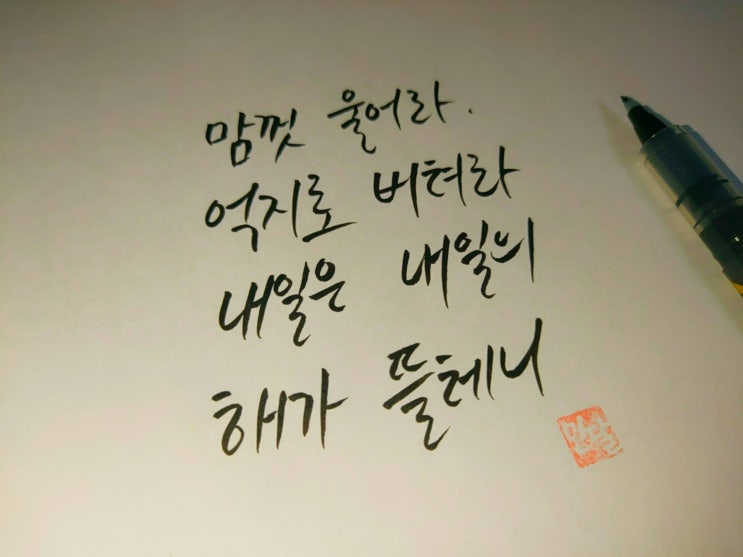 맘껏 울어라.
억지로 버텨라
내일은 내일의
해가 뜰테니